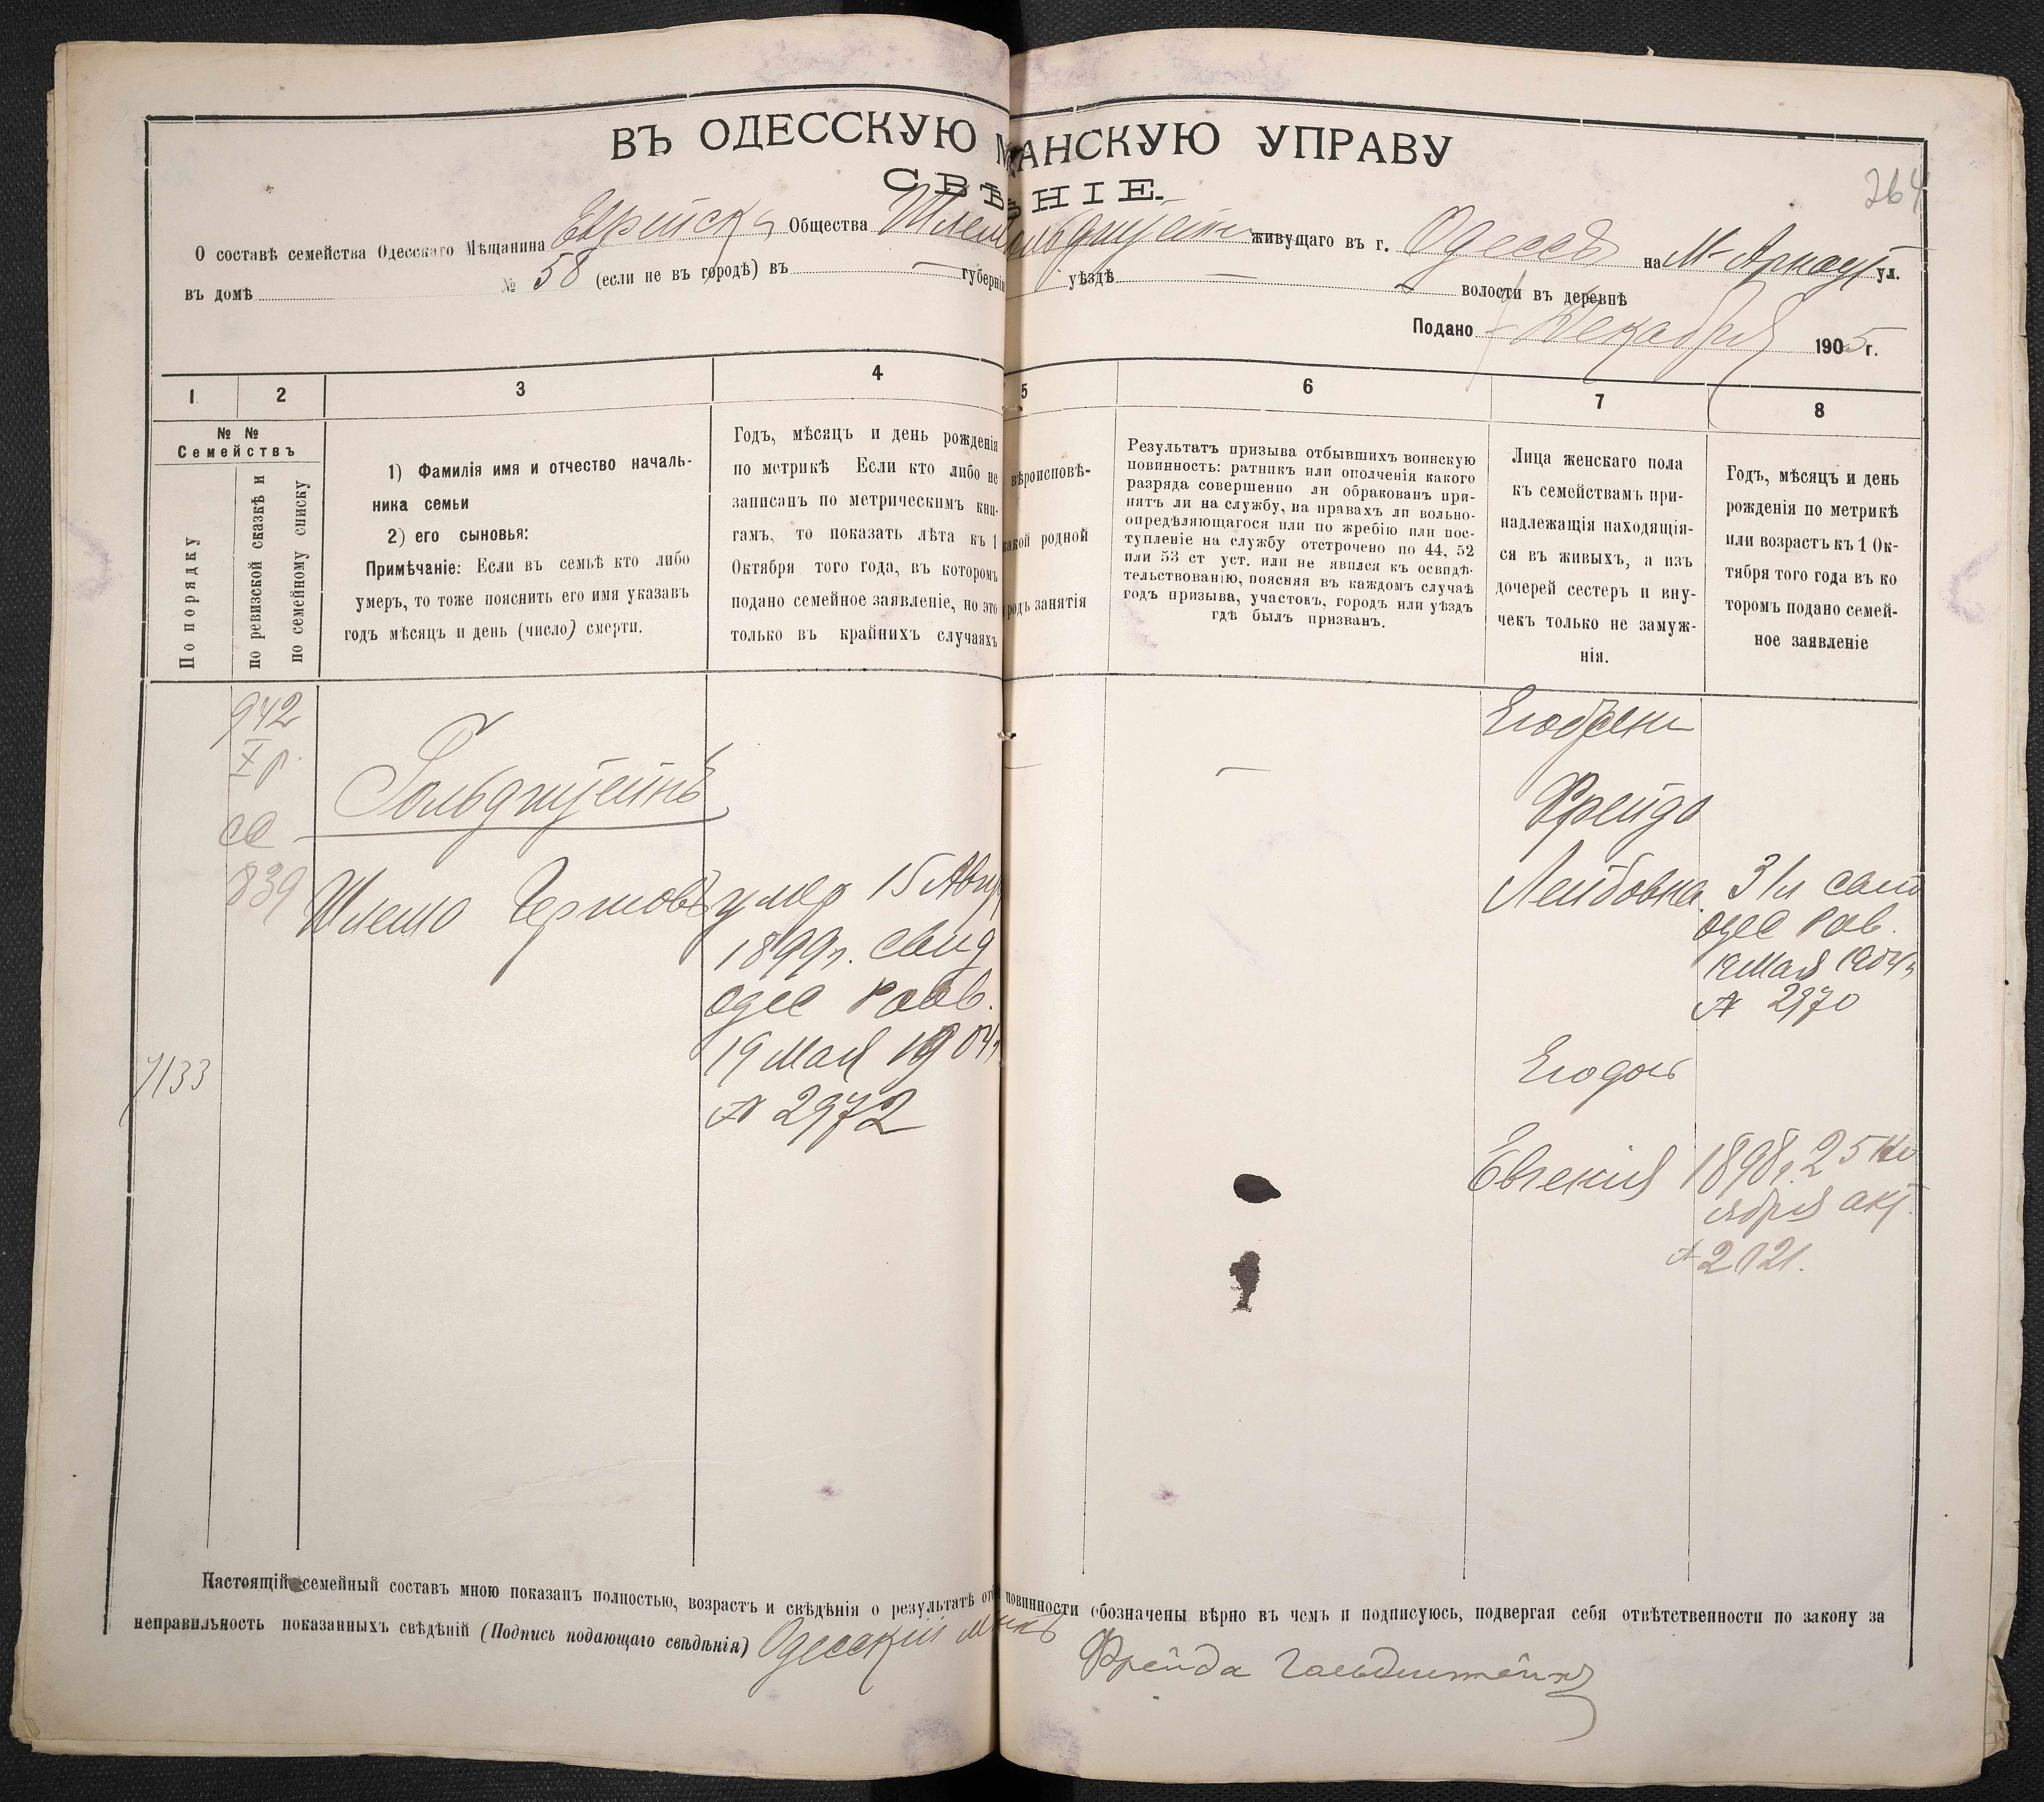 ВЪ ОДЕССКУЮ М АНСКУЮ УПРАВУ
СВѢ НІЕ.
264
О составѣ семейства Одесскаго Мѣщанина Еврейск Общества Шлем ольдштейн живущаго въ г. Одессѣ на М-Арнаут ул.
въ домѣ № 58 (если не въ городѣ) въ — губерніи уѣздѣ — волости въ деревнѣ
Подано Декабря 1905 г.
1 2 3 4 5 6 7 8
№ №
Семействъ
По порядку
по ревизской сказкѣ и
по семейному списку
1) Фамилія имя и отчество началь-
ника семьи
2) его сыновья:
Примѣчаніе: Если въ семьѣ кто либо
умеръ, то тоже пояснить его имя указавъ
годъ мѣсяцъ и день (число) смерти.
Годъ, мѣсяцъ и день рожденія
по метрикѣ Если кто либо не
записанъ по метрическимъ кни-
гамъ, то показать лѣта къ 1
Октября того года, въ которомъ
подано семейное заявленіе, но это
только въ крайнихъ случаяхъ
вѣроисповѣ-
какой родной
родъ занятія
Результатъ призыва отбывшихъ воинскую
повинность: ратникъ или ополченія какого
разряда совершенно ли обракованъ при-
нятъ ли на службу, на правахъ ли вольно-
опредѣляющагося или по жребію или пос-
тупленіе на службу отстрочено по 44, 52
или 53 ст уст. или не явился къ освидѣ-
тельствованію, поясняя въ каждомъ случаѣ
годъ призыва, участокъ, городъ или уѣздъ
гдѣ былъ призванъ.
Лица женскаго пола
къ семействамъ при-
надлежащія находящія-
ся въ живыхъ, а изъ
дочерей сестеръ и вну-
чекъ только не замуж-
нія.
Годъ, мѣсяцъ и день
рожденія по метрикѣ
или возрастъ къ 1 Ок-
тября того года въ ко
торомъ подано семей-
ное заявленіе
942
X р.
сс
839
7133
Гольдштейнъ
Шлемо Гершовъ
умер 15 Авгу
1899г. свид
одес Равв.
19 мая 1904г
№ 2972
—
Его жен
Фрейда
Лейбовна
Его дочь
Евгенія
31л
одес Рав.
19 Мая 1904г
№ 2970
1898г. 25 Но
ября акт.
№ 2121.
Настоящій семейный составъ мною показанъ полностью, возрастъ и свѣдѣнія о результатѣ от повинности обозначены вѣрно въ чемъ и подписуюсь, подвергая себя отвѣтственности по закону за
неправильность показанныхъ свѣдѣній (Подпись подающаго свѣдѣнія) Одесскій
Фрейда Гольдштейнъ